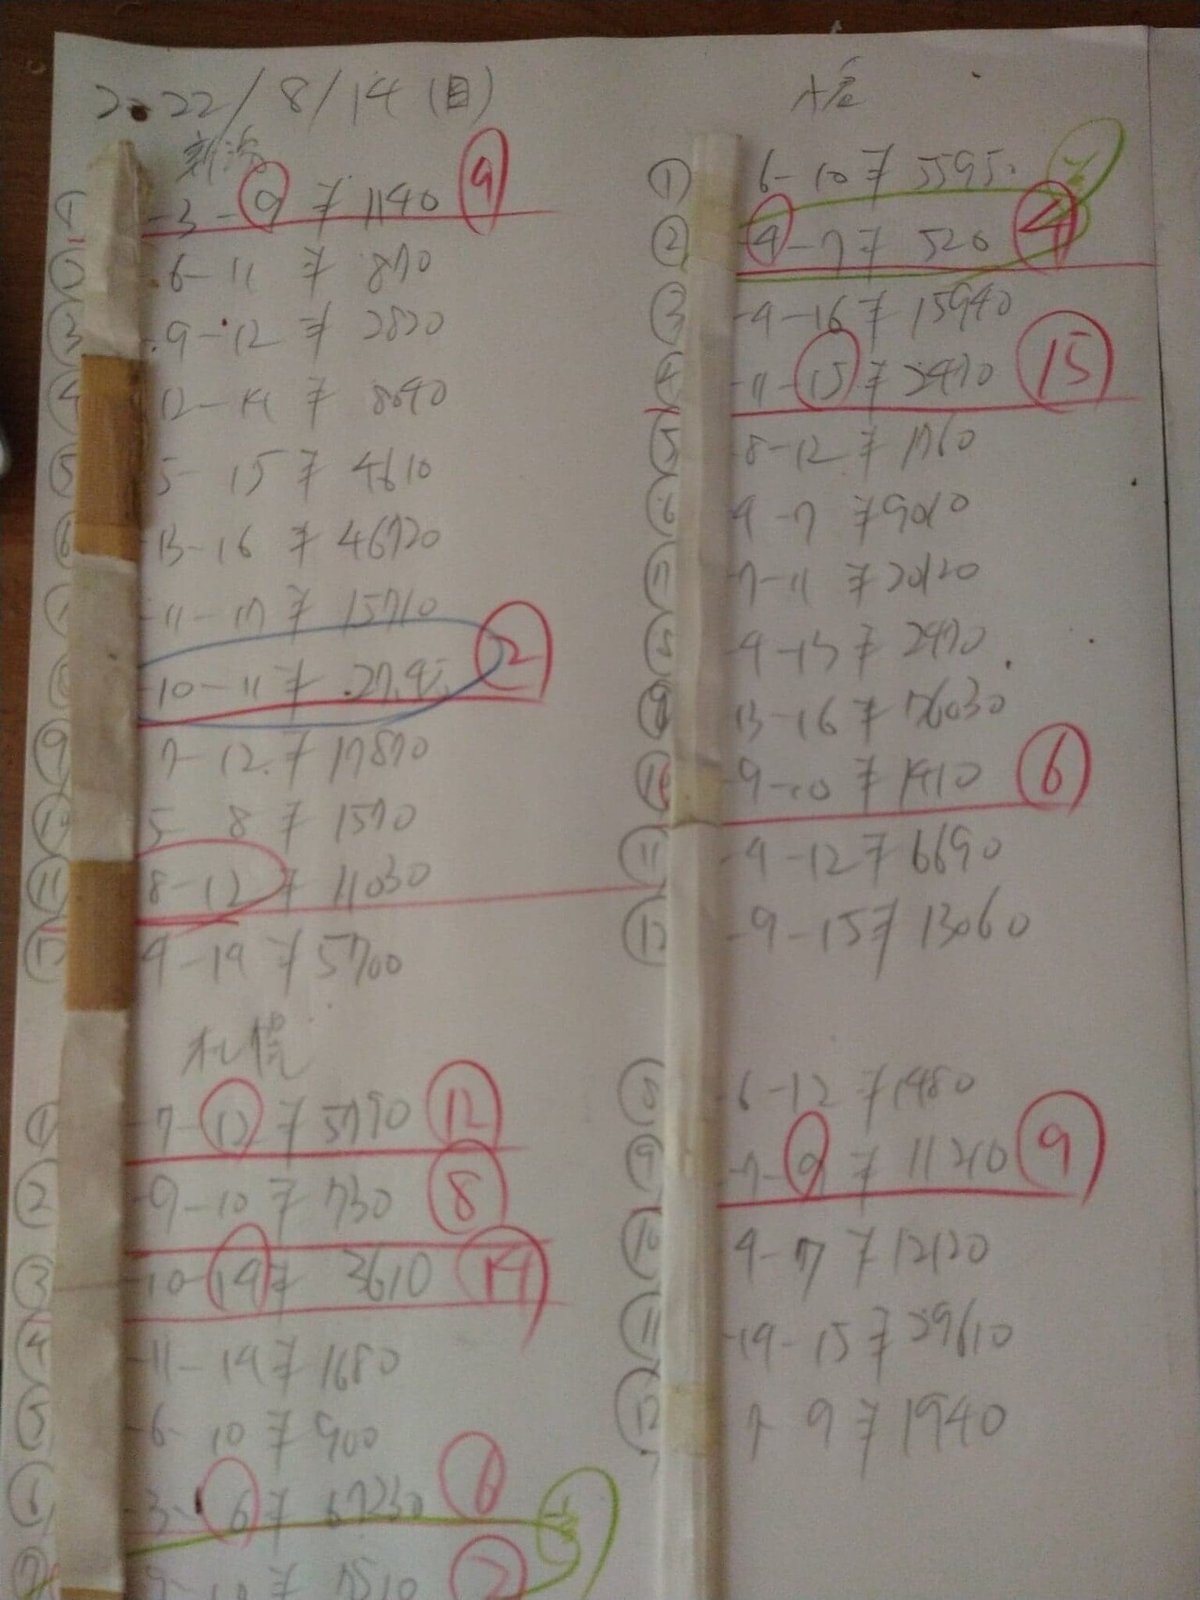 2022/8/14(日)
新潟
① -3-9 ¥ 1140 9
② -6-11 ¥ 870
③ -9-12 ¥ 2820
④ 12-14 ¥ 8640
⑤ 5-15 ¥ 4610
⑥ -13-16 ¥ 46720
-11-17 ¥ 15710
⑧ -10-11 ¥ 2
⑨ 7-12 ¥ 17870
⑩ 5 8 ¥ 1570
⑪ 8-12 ¥ 11030
⑫ 4-19 ¥ 5700
札幌
① -7-12 ¥ 5790 12
② -9-10 ¥ 730 8
③ -10-14 ¥ 3610 14
④ -11-14 ¥ 1680
⑤ -6 10 ¥ 900
⑥ -3-6 ¥ 67230 6
⑦
小倉
① 6-10 ¥ 5595
② -4-7 ¥ 520 4
③ -4-16 ¥ 15940
④ -11-15 ¥ 2470 15
⑤ -8-12 ¥ 1760
⑥ 4-7 ¥ 9010
⑦ -7-11 ¥ 20120
⑧ -4-13 ¥ 2470
⑨ 13-16 ¥ 76030
⑩ -9-10 ¥ 1410 6
⑪ -4-12 ¥ 6690
⑫ -9-15 ¥ 13060
⑧ -6-12 ¥ 1480
⑨ -7-9 ¥ 11210 9
⑩ 4-7 ¥ 12120
⑪ -14-15 ¥ 29610
⑫ 7 9 ¥ 1940